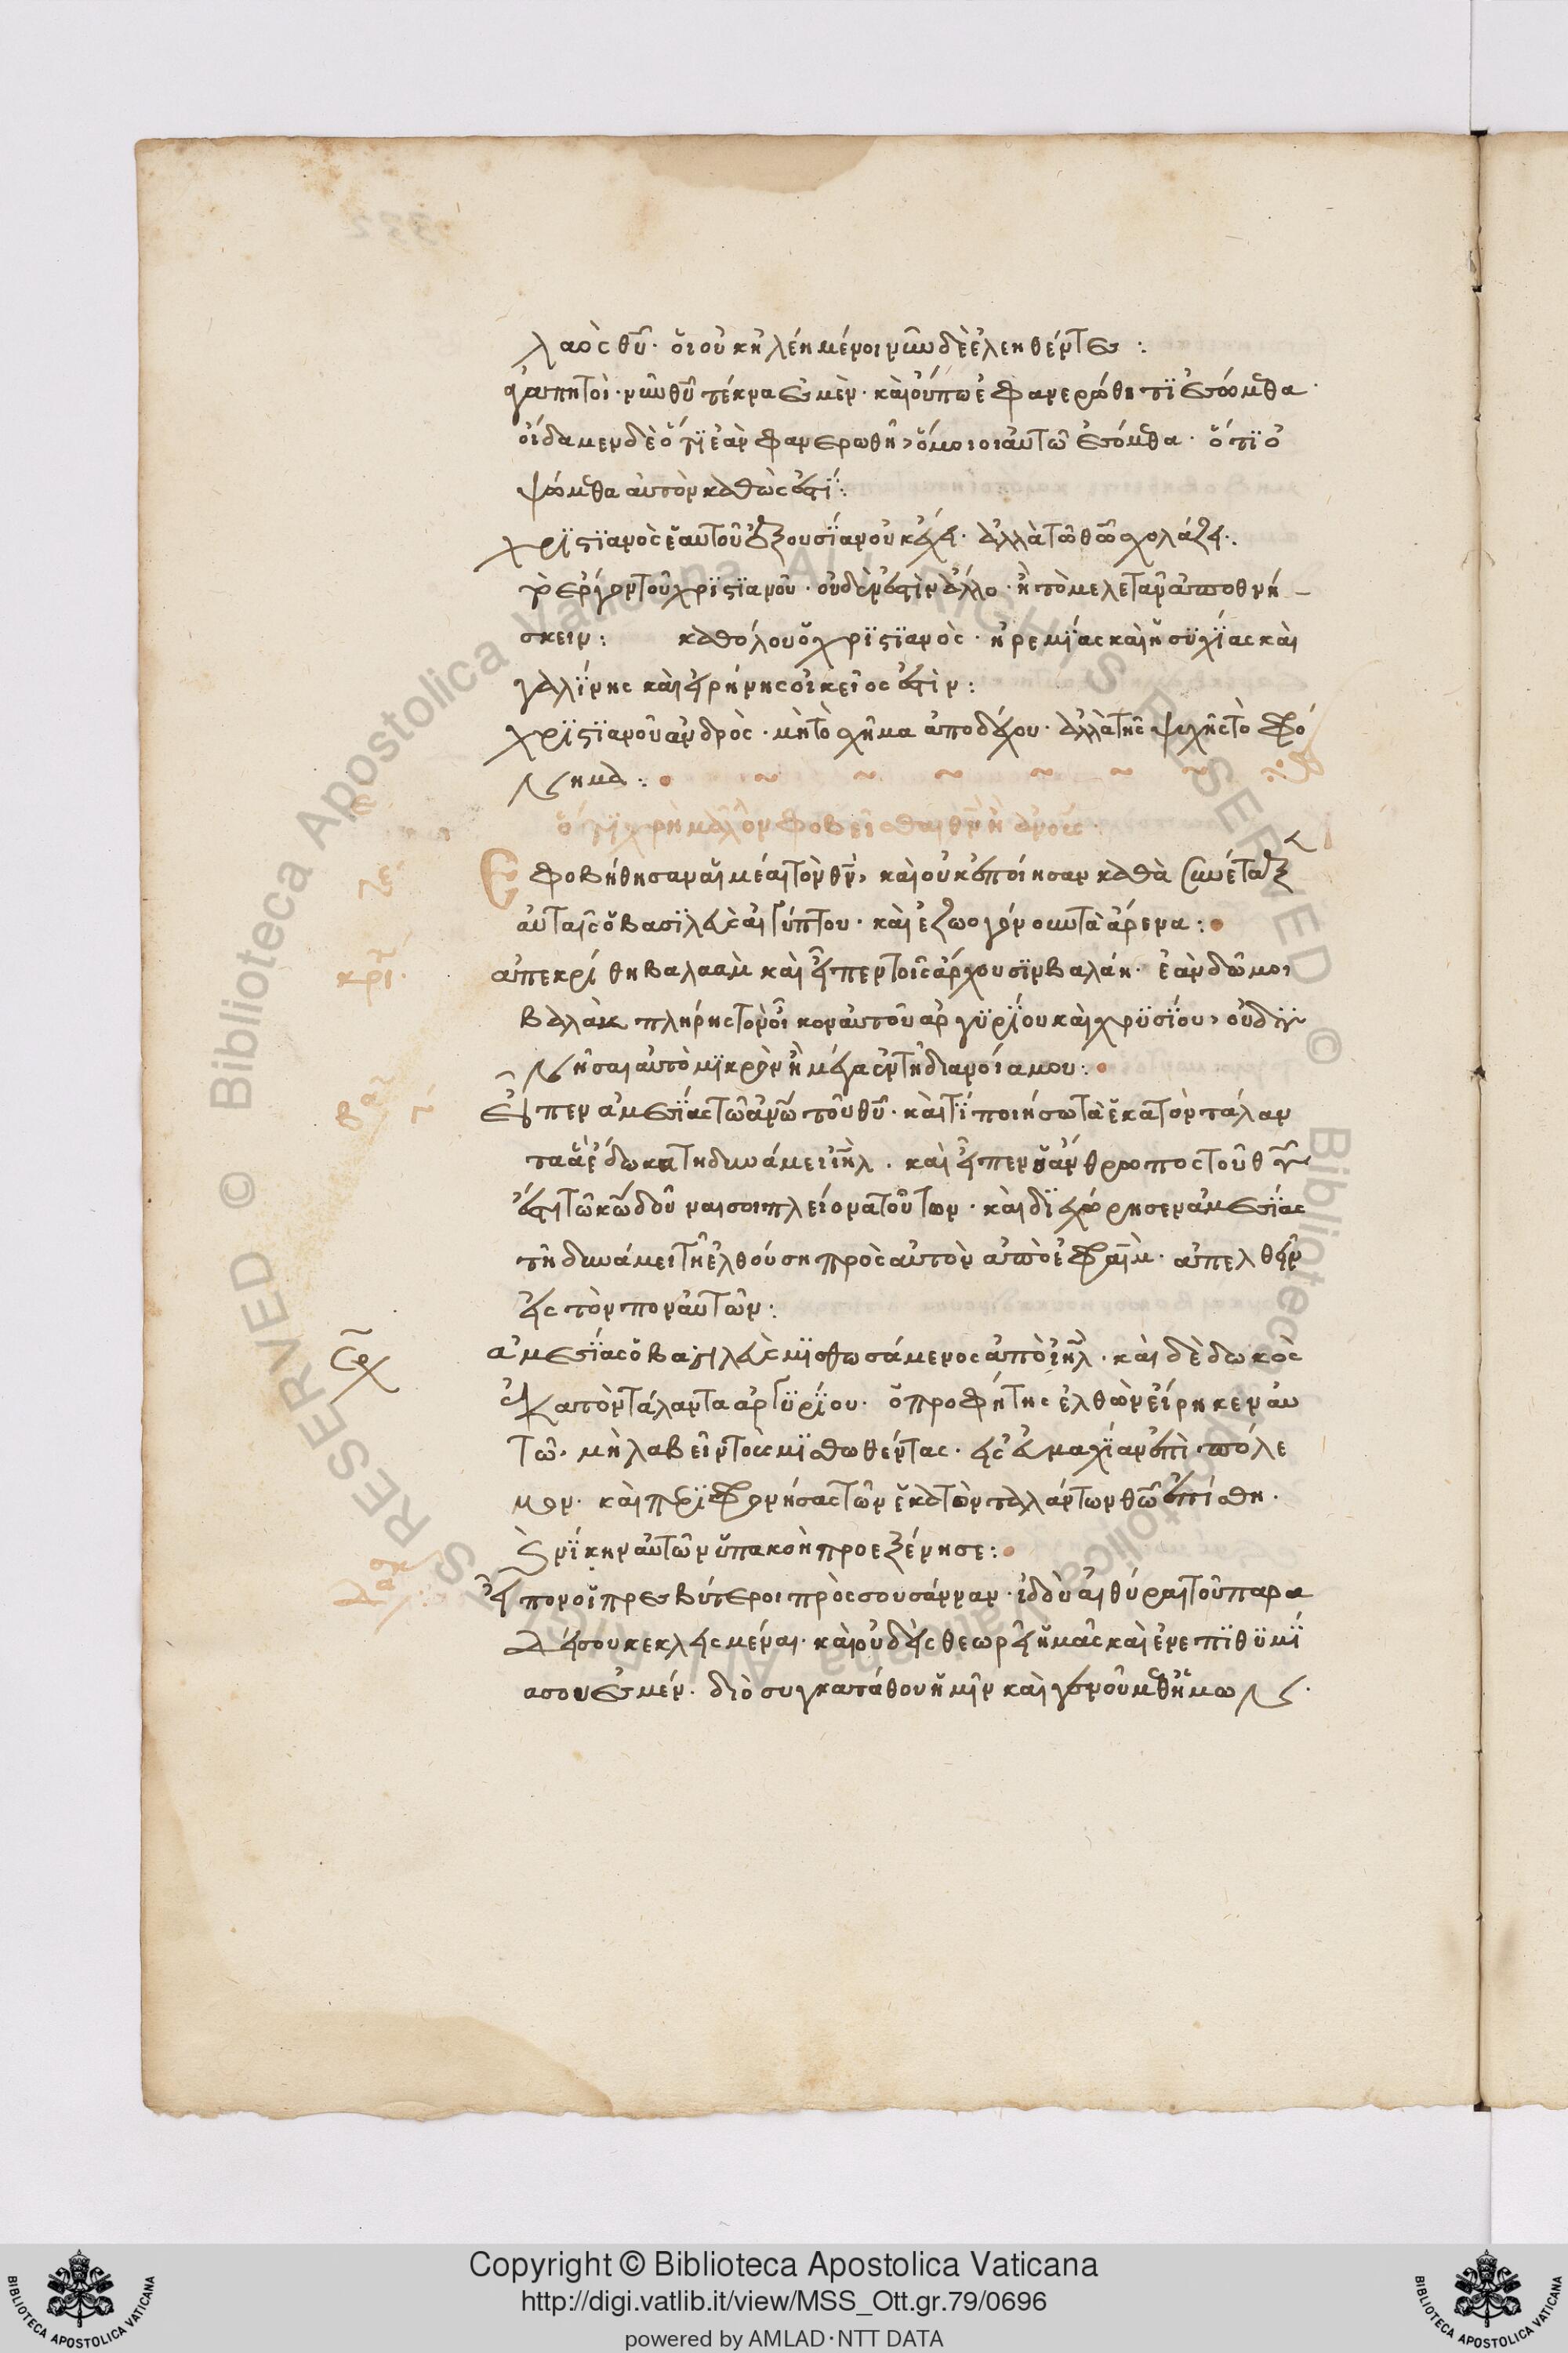 λαὸς θῦ· ὅι οὐκ ἠλέημένοι νῦν δὲ ἐλεηθέντες:
ἀγαπητοὶ· νῦν θῦ τέκνα ἐσμὲν· καὶ οὔπω ἐφανερώθη τϊ ἐσόμεθα·
οἴδαμεν δὲ ὅτϊ ἐὰν φανερωθῆ, ὅμοιοι αὐτῶ ἐσόμεθα· ὅτϊ ὀ
ψόμεθα αὐτὸν καθὼς ἐστϊ:
χρϊστϊανὸς ἑαυτοῦ ἐξουσϊαν οὐκ ἔχει· ἀλλὰ τῶ θεῶ σχολάζει:
τὸ ἔργον τοῦ χρϊστϊανοῦ· οὐδὲν ἐστὶν ἄλλο· ἢ τὸ μελετᾶν ἀποθνή –
σκειν: καθόλου ὁ χρϊστϊανὸς· ἠρεμϊας καὶ ἡσϋχϊας καὶ
γαλϊνης καὶ εἰρήνης οἰκεῖος ἐστὶν:
χρϊστϊανοῦ ἀνδρὸς· μὴ τὸ σχῆμα ἀποδέχου· ἀλλὰ τῆς ψυχῆς τὸ φρό
νημα:
ὅτϊ χρὴ μᾶλλον φοβεῖσθαι θν̄ ἢ ἀνους·
Εφοβήθησαν αἱ μέαι τὸν θν̄, καὶ οὐκ ἐποίησαν καθὰ συνέταξε
αὐταῖς ὁ βασϊλεὺς αἰγύπτου· καὶ ἐζωογόνουν τὰ ἄρενα:
ἀπεκρίθη βαλαὰμ καὶ εἶπεν τοῖς ἄρχουσϊν βαλάκ· ἐὰν δῶ μοι
βαλὰκ πλήρης τὸν οἶκον αὐτοῦ ἀργϋρϊου καὶ χρϋσϊου, οὐ δυ
νήσαι αὐτὸ μϊκρὸν ἢ μέγα ἐν τῆ διανοία μου:
Εἶπεν ἀμεσϊας τῶ ἀνῶ τοῦ θῦ· καὶ τϊ ποιήσω τὰ ἑκατὸν τάλαν
τα ἃ ἔδωκα τῆ δυνάμει ιηλ· καὶ εἶπεν ὁ ἄνθρωπος τοῦ θῦ
ἔστι τῶ κω δοῦναι σοι πλείονα τούτων· καὶ δϊεχώρησεν ἀμεσϊας
τῆ δυνάμει τῆ ἐλθούση πρὸς αὐτὸν ἀπὸ ἐφραὶμ· ἀπελθεῖν
εἰς τὸν πον αὐτῶν:
ἀμεσϊας ὁ βασιλεὺς μϊσθωσάμενος ἀπὸ ιηλ· καὶ δὲδωκὸς
ἑκατὸν τάλαντα ἀργϋρϊου· ὁ προφήτης ἐλθὼν εἴρηκεν αὐ
τῶ, μὴ λαβεῖν τοὺς μϊσθωθέντας· εἰς συμμαχϊαν ἐπὶ πόλε
μον· καὶ πρϊφρονήσας τῶν ἑκατὸν ταλάντων θῶ ἐπίσθη·
νϊκην αὐτῶν ὑπακοὴ προεξένησε:
εἶπον οἱ πρεσβύτεροι πρὸς σουσάνναν· ἰδδὺ αἱ θύραι τοῦ παρα
δείσου κεκλεισμέναι· καὶ οὐδεὶς θεωρεῖ ἡμᾶς καὶ ἐν επϊθϋμϊ
α σου ἐσμέν· διὸ συγκατάθου ἡμῖν καὶ γενοῦ μεθ' ἡμῶν·
Copyright © Biblioteca Apostolica Vaticana
http://digi.vatlib.it/view/MSS_Ott.gr.79/0696
powered by AMLAD·NTT DATA